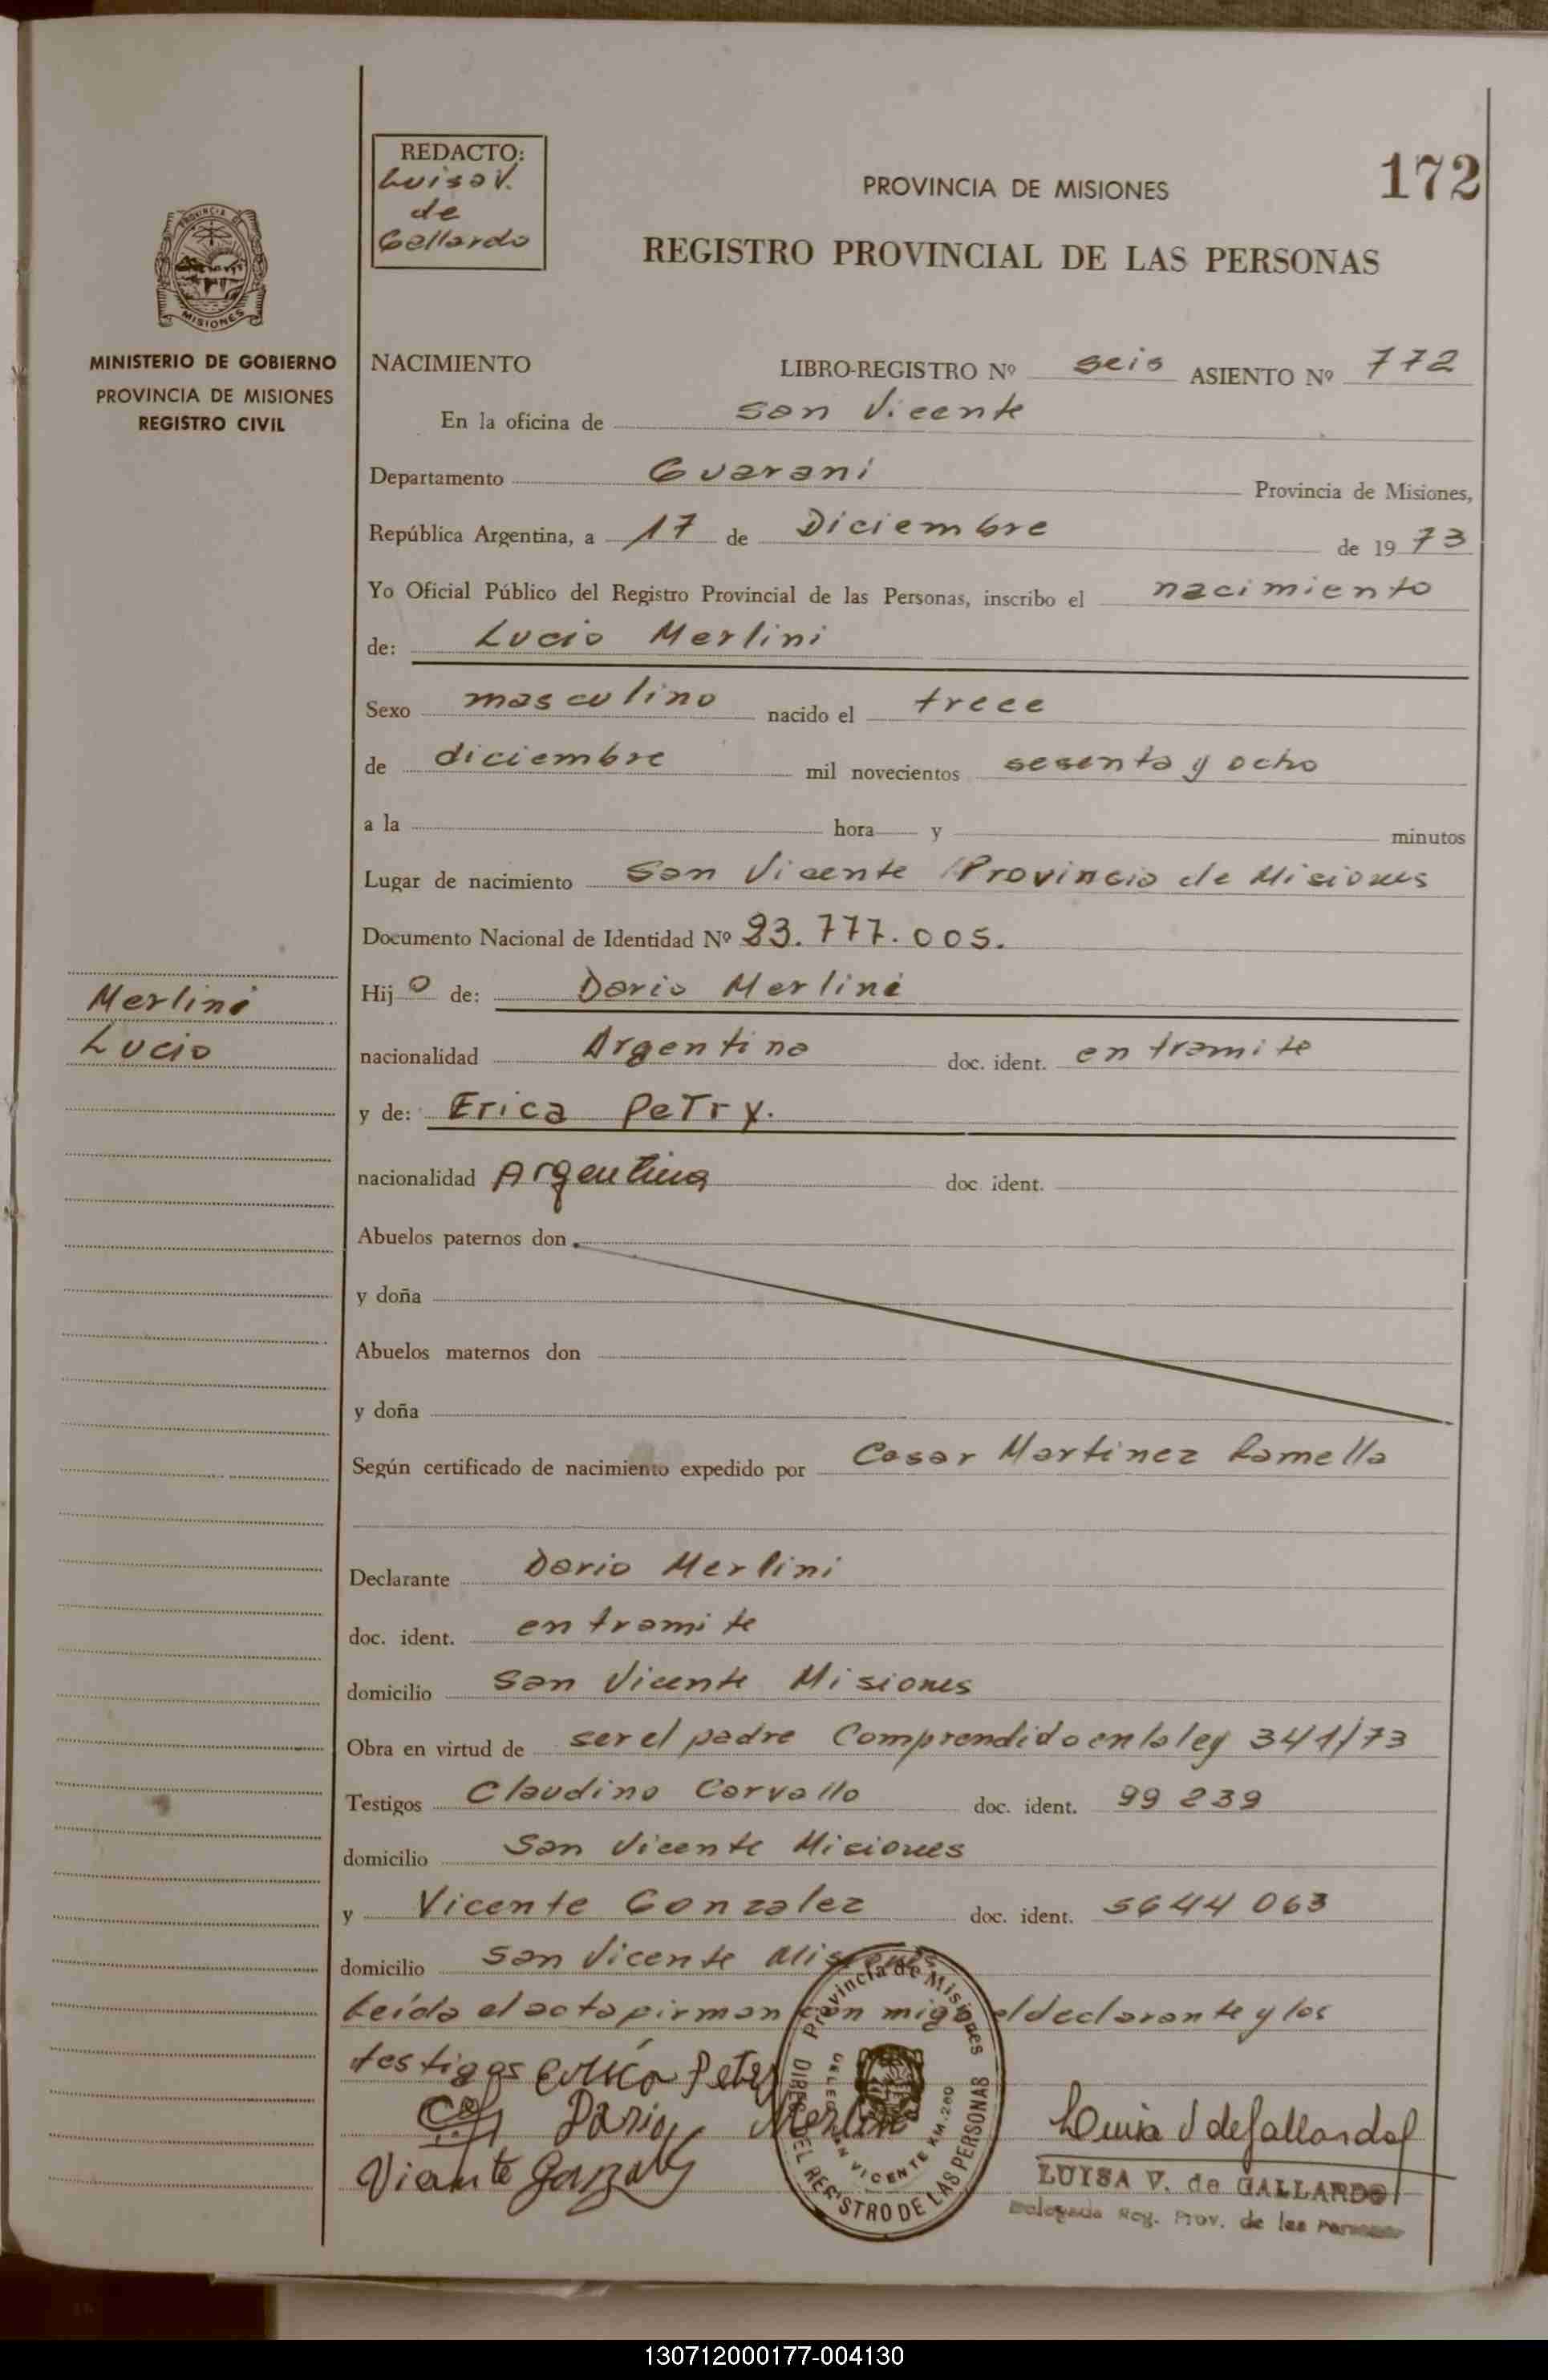 REDACTO:
Luisa V.
de
Gallardo
PROVINCIA DE MISIONES
172
REGISTRO PROVINCIAL DE LAS PERSONAS
PROVINCIA DE
MISIONES
MINISTERIO DE GOBIERNO
PROVINCIA DE MISIONES
REGISTRO CIVIL
NACIMIENTO LIBRO-REGISTRO Nº seis ASIENTO Nº 772
En la oficina de San Vicente
Departamento Guarani Provincia de Misiones,
República Argentina, a 17 de Diciembre de 1973
Yo Oficial Público del Registro Provincial de las Personas, inscribo el nacimiento
de: Lucio Merlini
Sexo masculino nacido el trece
de diciembre mil novecientos sesenta y ocho
a la hora y minutos
Lugar de nacimiento San Vicente Provincia de Misiones
Documento Nacional de Identidad Nº 23.777.005.
Merlini
Lucio
Hijo de: Dario Merlini
nacionalidad Argentina doc. ident. en tramite
y de: Erica Petry.
nacionalidad Argentina doc. ident.
Abuelos paternos don
y doña
Abuelos maternos don
y doña
Según certificado de nacimiento expedido por Cesar Martinez Ramella
Declarante Dario Merlini
doc. ident. en tramite
domicilio San Vicente Misiones
Obra en virtud de ser el padre Comprendido en la ley 341/73
Testigos Claudino Carvallo doc. ident. 99 239
domicilio San Vicente Misiones
y Vicente Gonzalez doc. ident. 5644 063
domicilio San Vicente Misiones
Leída el acta firman con migo el declarante y los
testigos Erica Petry
Dario Merlini
Vicente Gonzalez
Provincia de Misiones
DIREC. DEL REGISTRO DE LAS PERSONAS
SAN VICENTE KM. 200
Luisa V de Gallardo
LUISA V. de GALLARDO
Delegada Reg. Prov. de las Personas
130712000177-004130